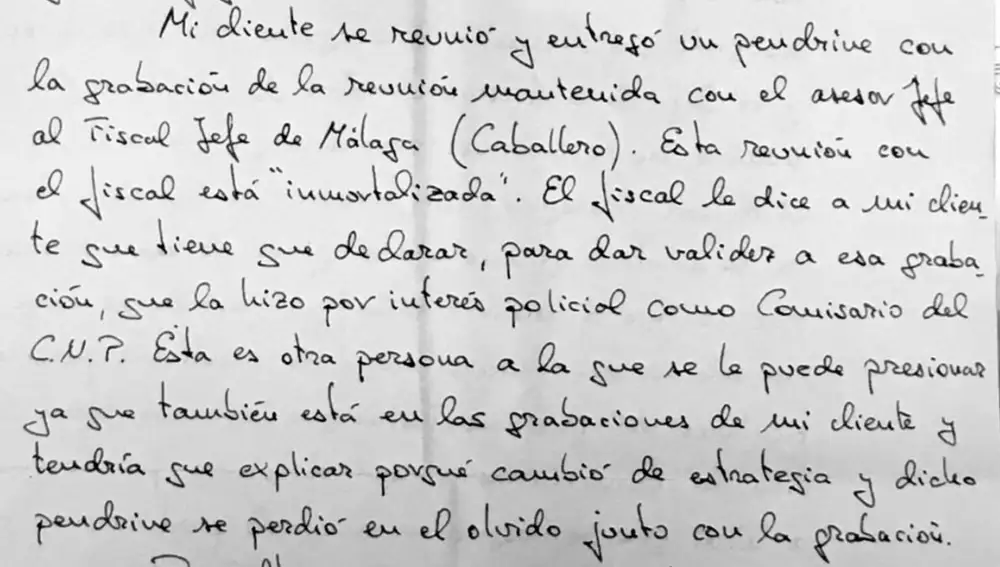 Mi cliente se reunió y entregó un pendrive con
la grabación de la reunión mantenida con el asesor Jefe
al Fiscal Jefe de Málaga (Caballero). Esta reunión con
el fiscal está "inmortalizada". El fiscal le dice a mi clien_
te que tiene que declarar, para dar validez a esa graba_
ción, que la hizo por interés policial como Comisario del
C.N.P. Ésta es otra persona a la que se le puede presionar
ya que también está en las grabaciones de mi cliente y
tendría que explicar porqué cambió de estrategia y dicho
pendrive se perdió en el olvido junto con la grabación.